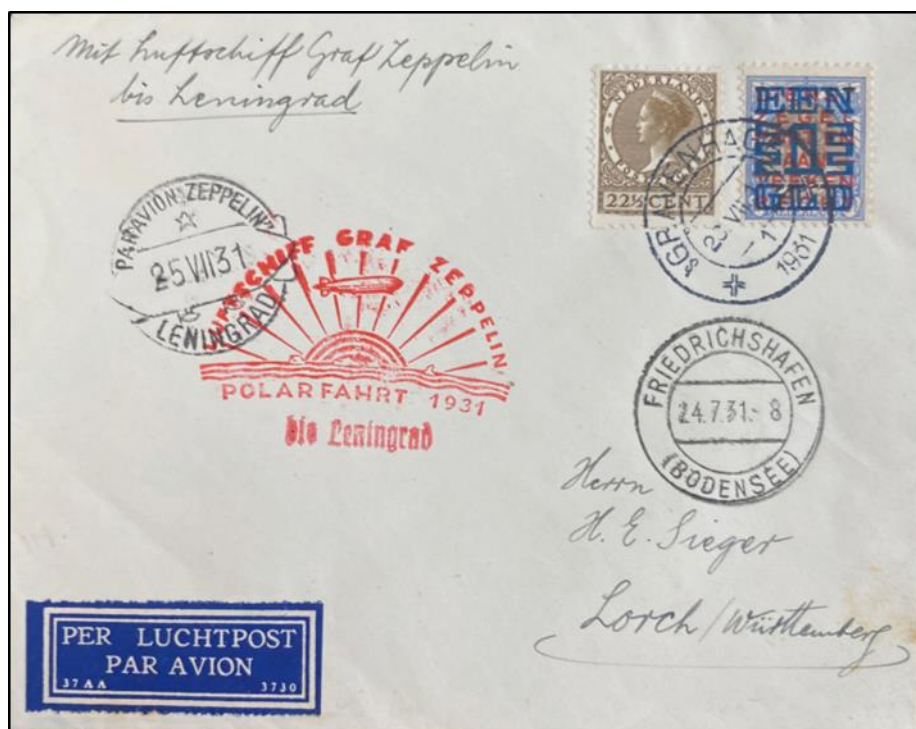 Mit Luftschiff Graf Zeppelin
bis Leningrad
NEDERLAND
22½ CENT
EEN
GLD
'S GRAVENHAGE
1931
PAR AVION ZEPPELIN
25 VII 31
LENINGRAD
LUFTSCHIFF GRAF ZEPPELIN
POLARFAHRT 1931
bis Leningrad
FRIEDRICHSHAFEN
24.7.31.- 8
(BODENSEE)
Herrn
H. E. Sieger
Lorch / Württemberg
PER LUCHTPOST
PAR AVION
37AA 3730